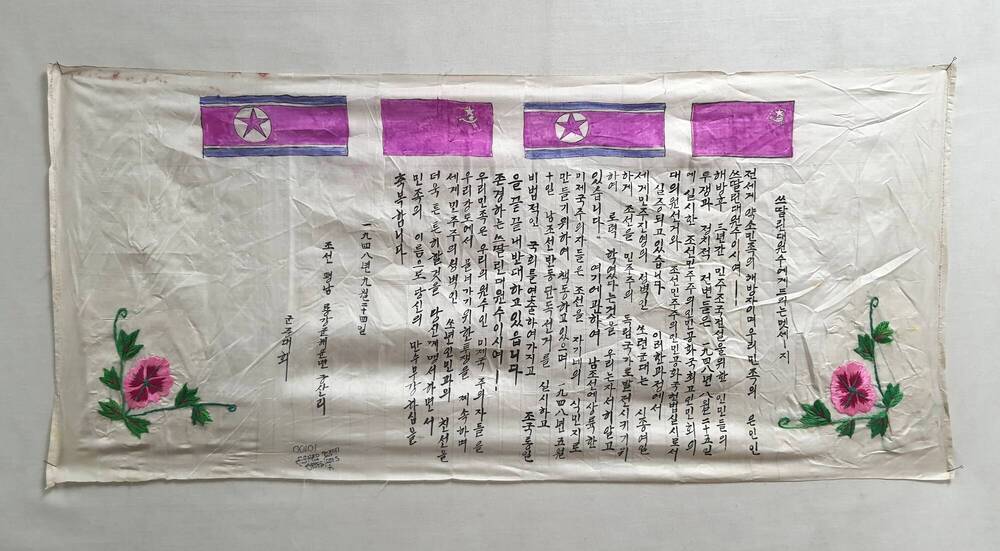 쓰딸린대원수에게 드리는 멧세ー지
전세계 약소민족의 해방자이며 우리민족의 은인인
쓰딸린대원수이시여ー!
해방후 三년간 민주조국건설을위한 인민들의
투쟁과 정치적 전변들은 一九四八년 八월 二十五일
에 실시한 조선민주주의인민공화국최고인민회의
대의원선거와 조선민주주의인민공화국헌법실시로서
실증되고있습니다 이러한과정에서
세계민주진영의 성벽인 쏘련군대는 시종여일
하게 조선을 민주주의 독립국가로발전시키기위
하여 노력 하였다는것을 우리는자서히알고
있습니다 여기에관하여 남조선에상륙한
미제국주의자들은 조선을 자기네의 식민지로
만들기위하여 책동하고있으며 一九四八년 五월
十일 남조선반동단독선거를 실시하고
비법적인 국회를연출하여가지고 조국통일
을 끝끝내 반대하고있읍니다
존경하는쓰딸린대원수이시여ー!
우리민족은 우리의 원수인 미제국주의자들을
우리강도에서 몰너가기위한투쟁을 계속하며
세계민주주의성벽인 쏘련인민과의 친선을
더욱 튼튼히할것을 당신게맹서하면서
민족의 이름으로 당신의 만수무강하심을
축복합니다
一九四八년 九월 二十四일
조선 평남 룡강군
군조대회